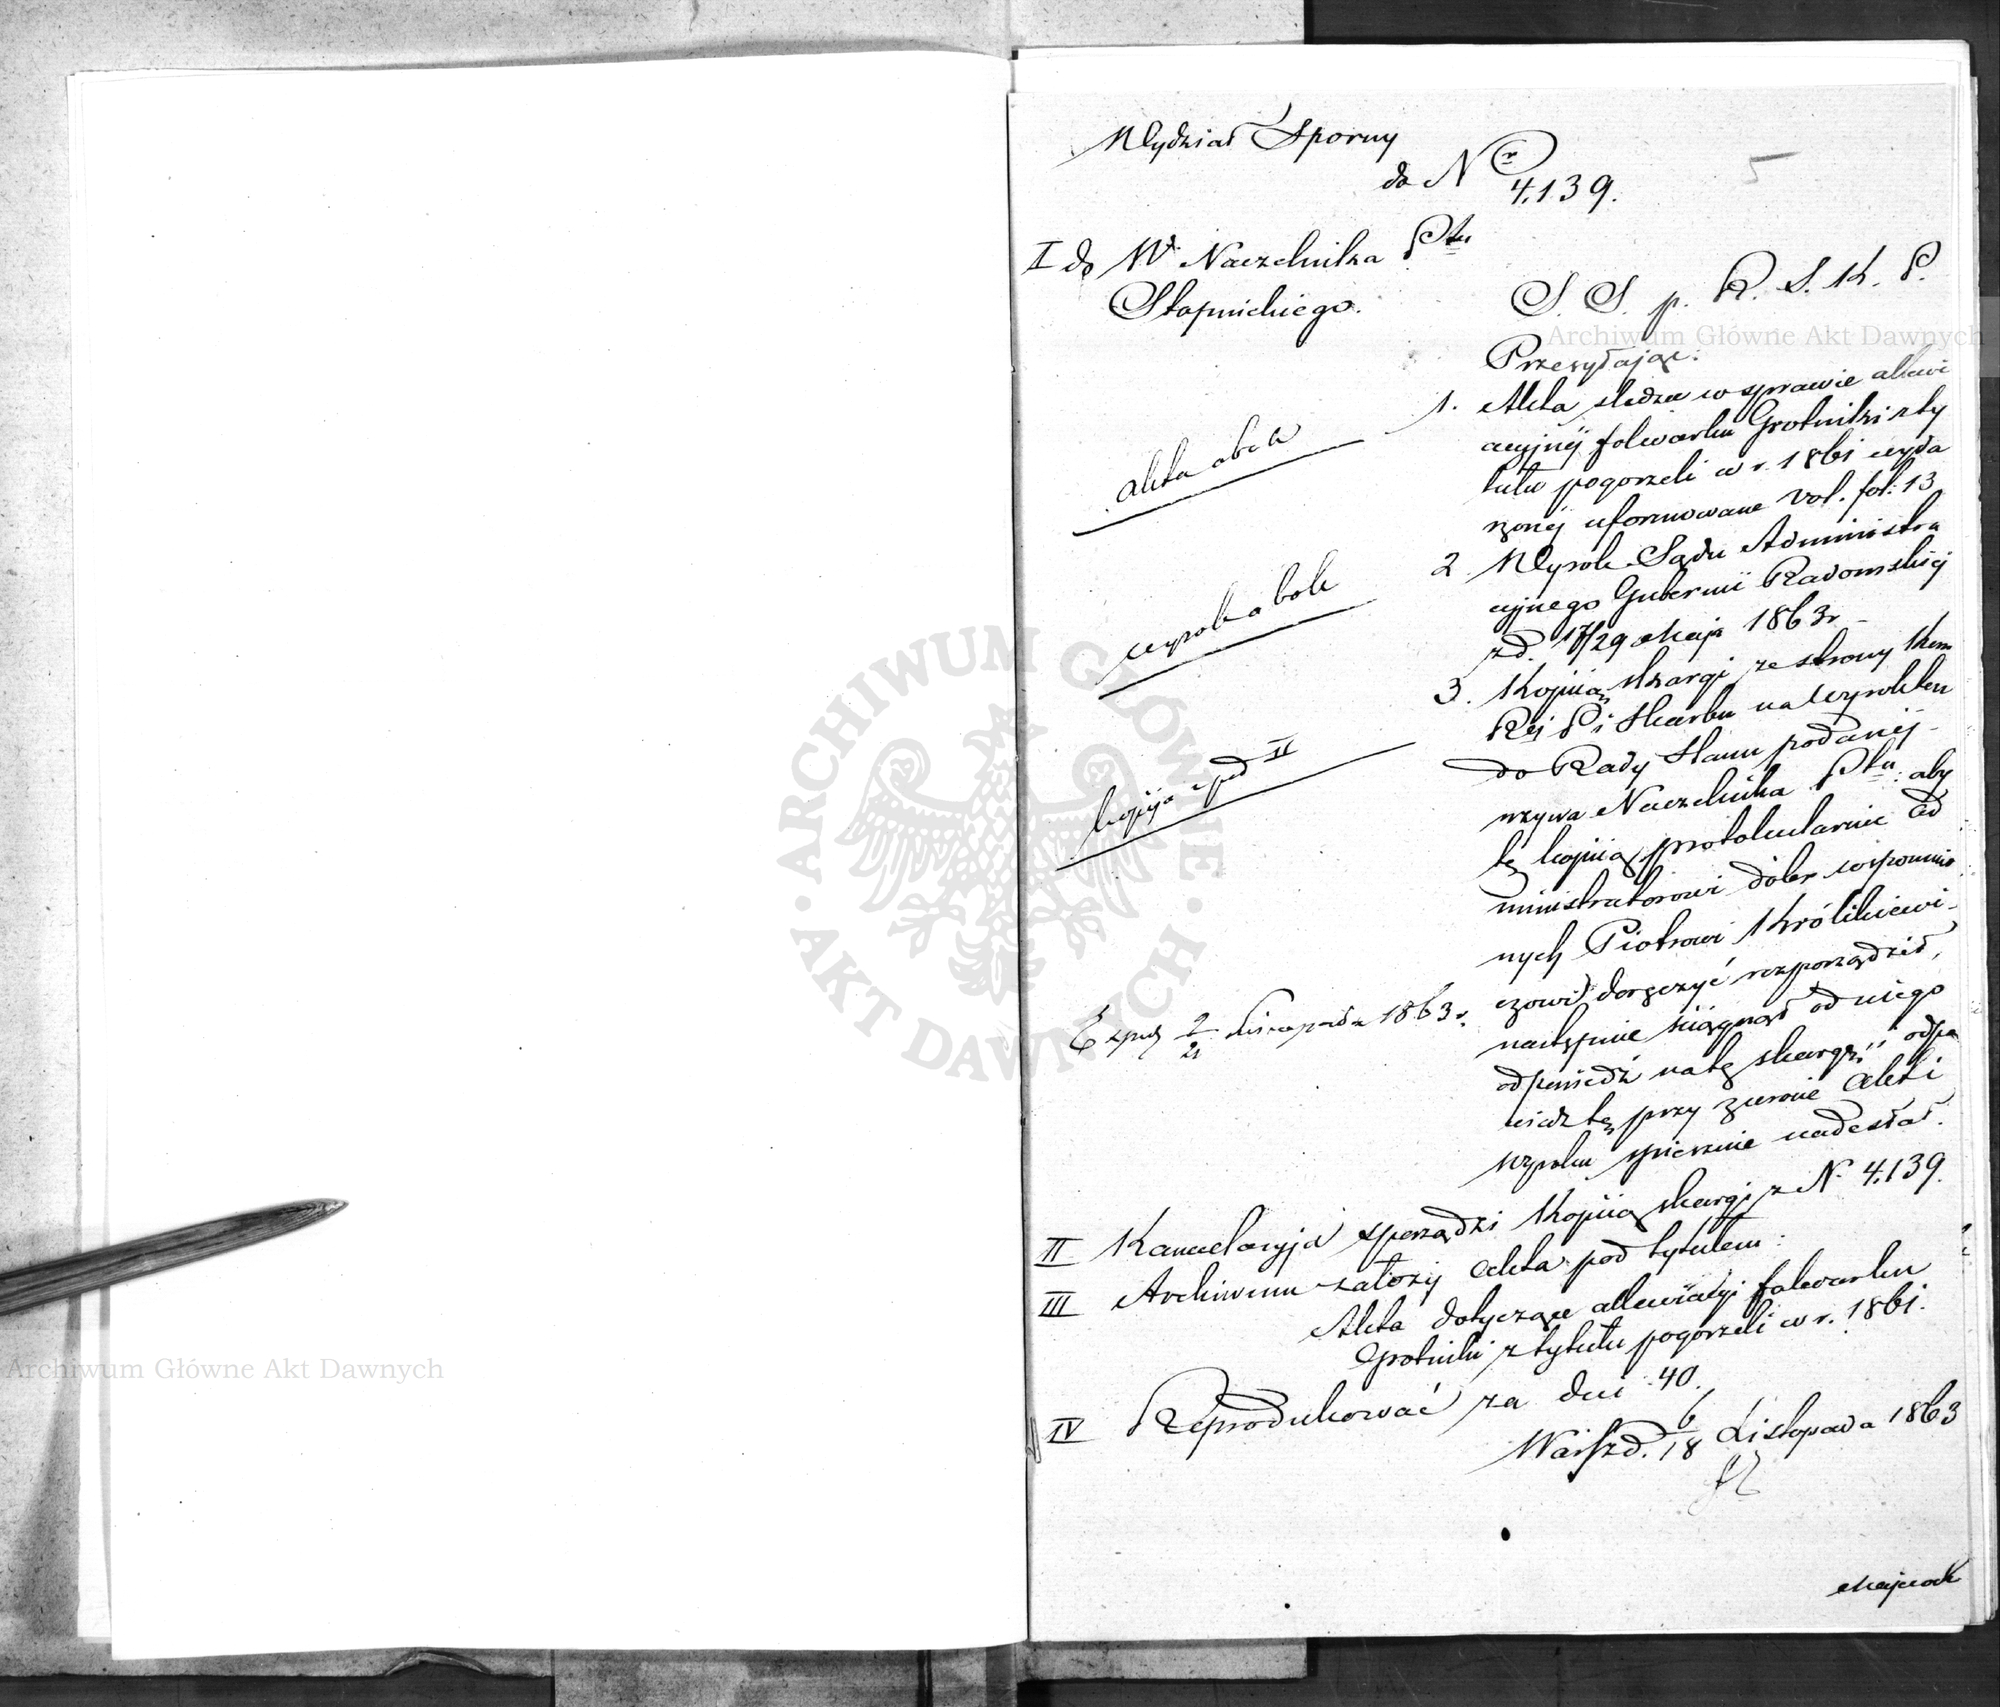 Wydział Sporny
do Nr 4,139.
5
I do W. Naczelnika Ptu
Stopnickiego.
S. S. p. R. S. K. P.
Przesyłając:
1. Akta śledcze w sprawie allewi
acyjnéj folwarku Grotniki z ty
tułu pogorzeli w r. 1861 wyda
rzonéj uformowane vol. fol: 13
akta obok
2. Wyrok Sądu Administra
cyjnego Gubernii Radomskiéj
z d. 17/29 Maja 1863 r
wyrok obok
3. Kopiią skargi ze strony Kom
Rej P i Skarbu na wyrok ten
do Rady Stanu podanéj
kopija pod II
wzywa Naczelnika Ptu: aby
tę kopiią protokularnie Ad
ministratorowi dóbr wspomnio
nych Piotrowi Królikiewi-
czowi doręczyć rozporządził,
następnie ściągnął od niego
odpowiedź na tę skargę i odpo
wiedź tę przy zwrocie Akt i
wyroku spiesznie nadesłał.
Exped 9/21 Listopada 1863 r.
II Kancelaryja sporządzi Kopiią skargi z N. 4,139.
III Archiwum założy Akta pod tytułem:
Akta dotyczące allewiacyi folwarku
Grotniki z tytułu pogorzeli w r. 1861.
IV Reprodukować za dni 40.
Warsz d. 6/18 Listopada 1863
Archiwum Główne Akt Dawnych
ARCHIWUM GŁÓWNE AKT DAWNYCH
Archiwum Główne Akt Dawnych